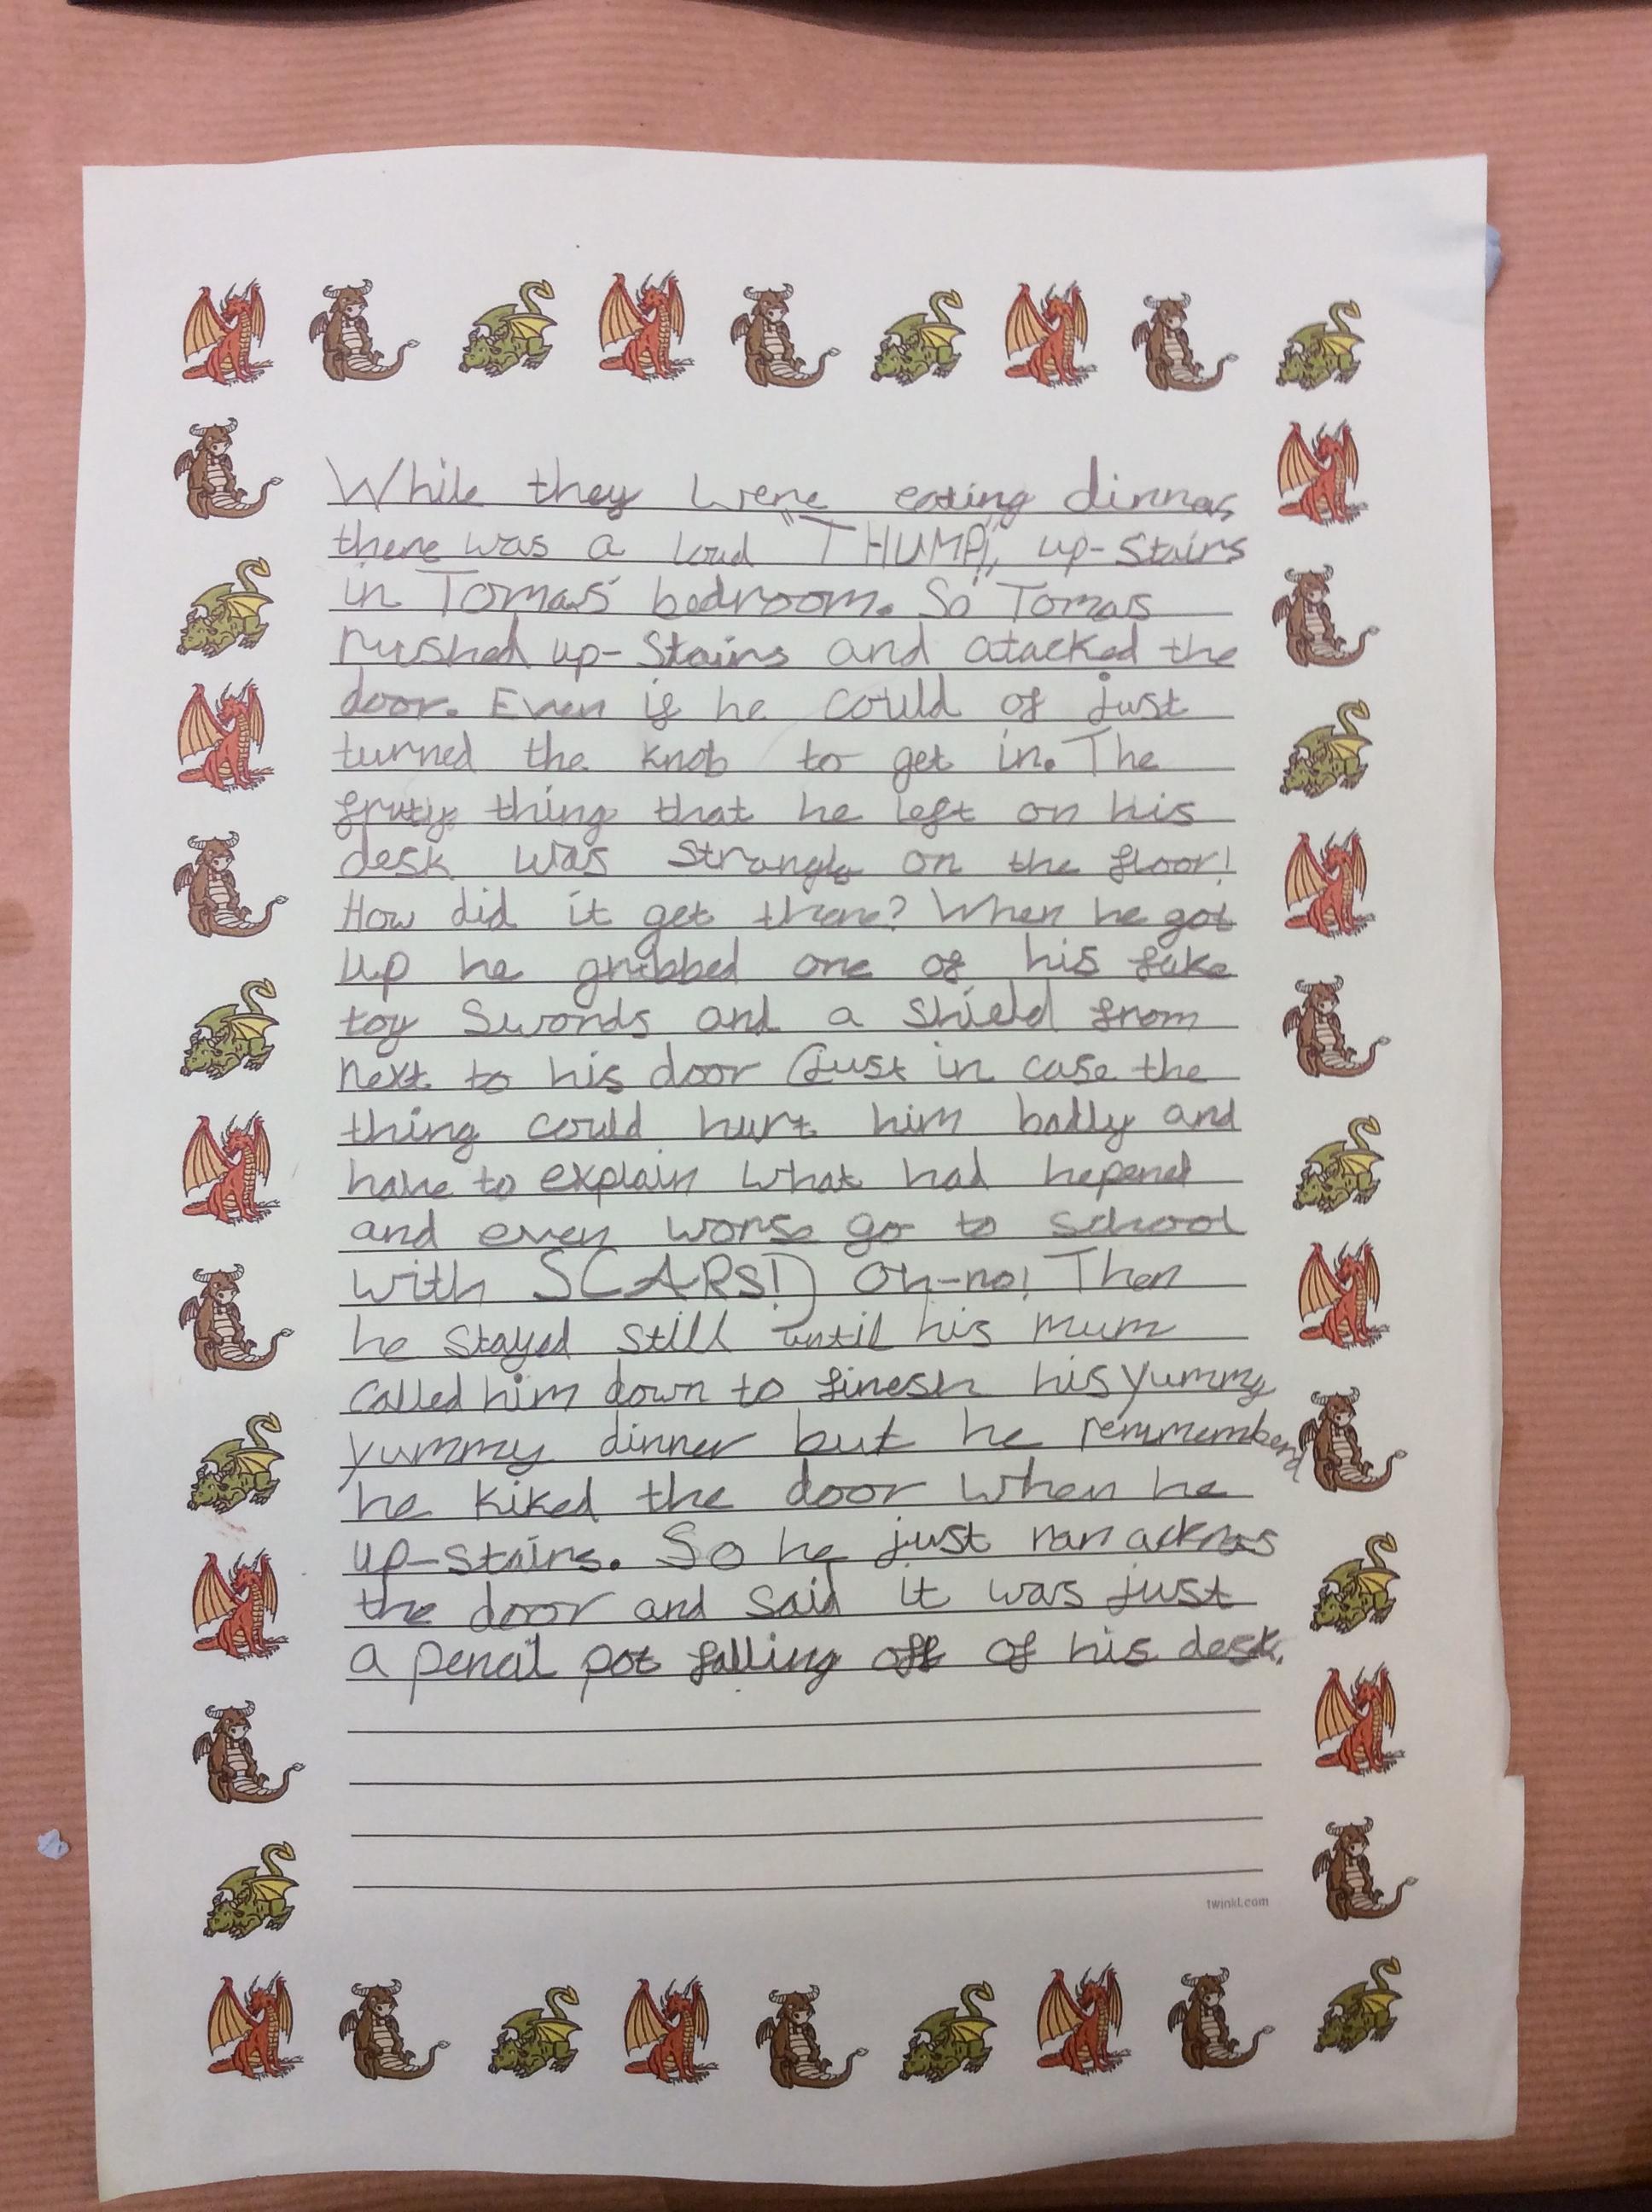 While they were eating dinner,
there was a loud "THUMP!", up-stairs
in Tomas' bedroom. So Tomas
rushed up-stairs and atacked the
door. Even if he could of just
turned the knob to get in. The
fruity thing that he left on his
desk was strangly on the floor!
How did it get there? When he got
up he grabbed one of his fake
toy swords and a shield from
next to his door (just in case the
thing could hurt him badly and
have to explain what had hepened
and even worse go to school
with SCARS!) Oh-no! Then
he stayed still until his mum
called him down to finesh his yummy
yummy dinner but he remmemberd
he kiked the door when he
up-stairs. So he just ran ackross
the door and said it was just
a pencil pot falling off of his desk.
twinkl.com